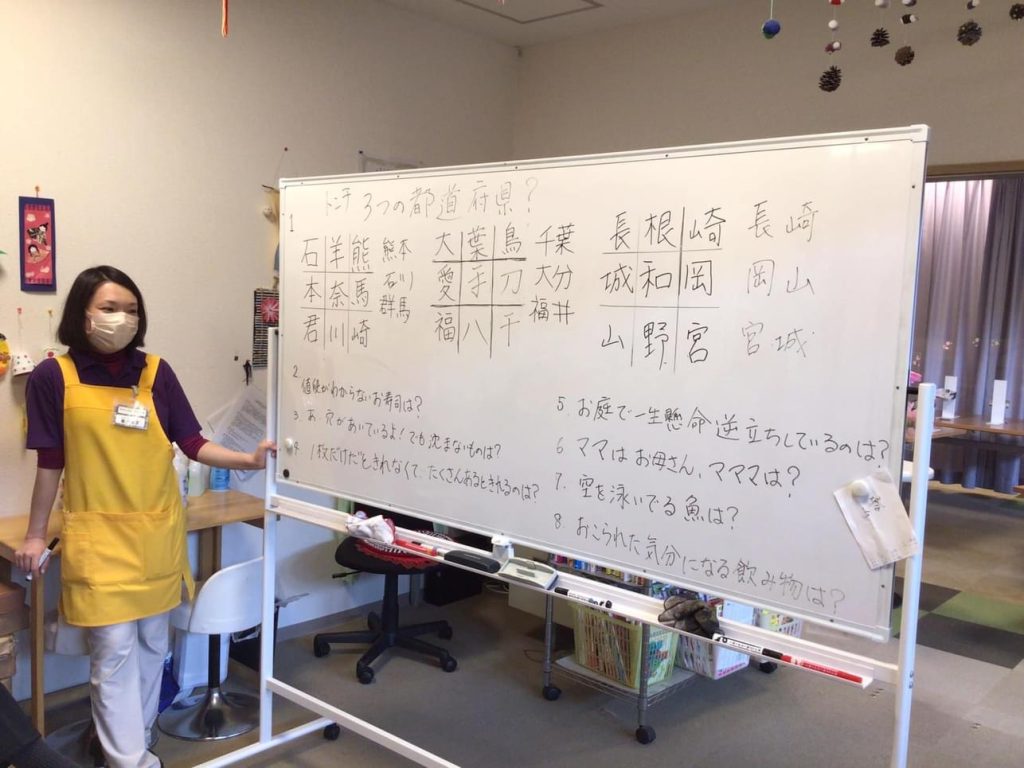 トンチ 3つの都道府県?
1
石 羊 熊 熊本
本 奈 馬 石川
君 川 崎 群馬
大 葉 鳥 千葉
愛 手 刀 大分
福 八 千 福井
長 根 崎 長崎
城 和 岡 岡山
山 野 宮 宮城
2 値段がわからないお寿司は?
3. あ、穴があいているよ!でも沈まないものは?
4 1枚だけだときれなくて、たくさんあるときれるのは?
5. お庭で一生懸命逆立ちしているのは?
6 ママはお母さん、マママは?
7. 空を泳いでる魚は?
8. おこられた気分になる飲み物は?